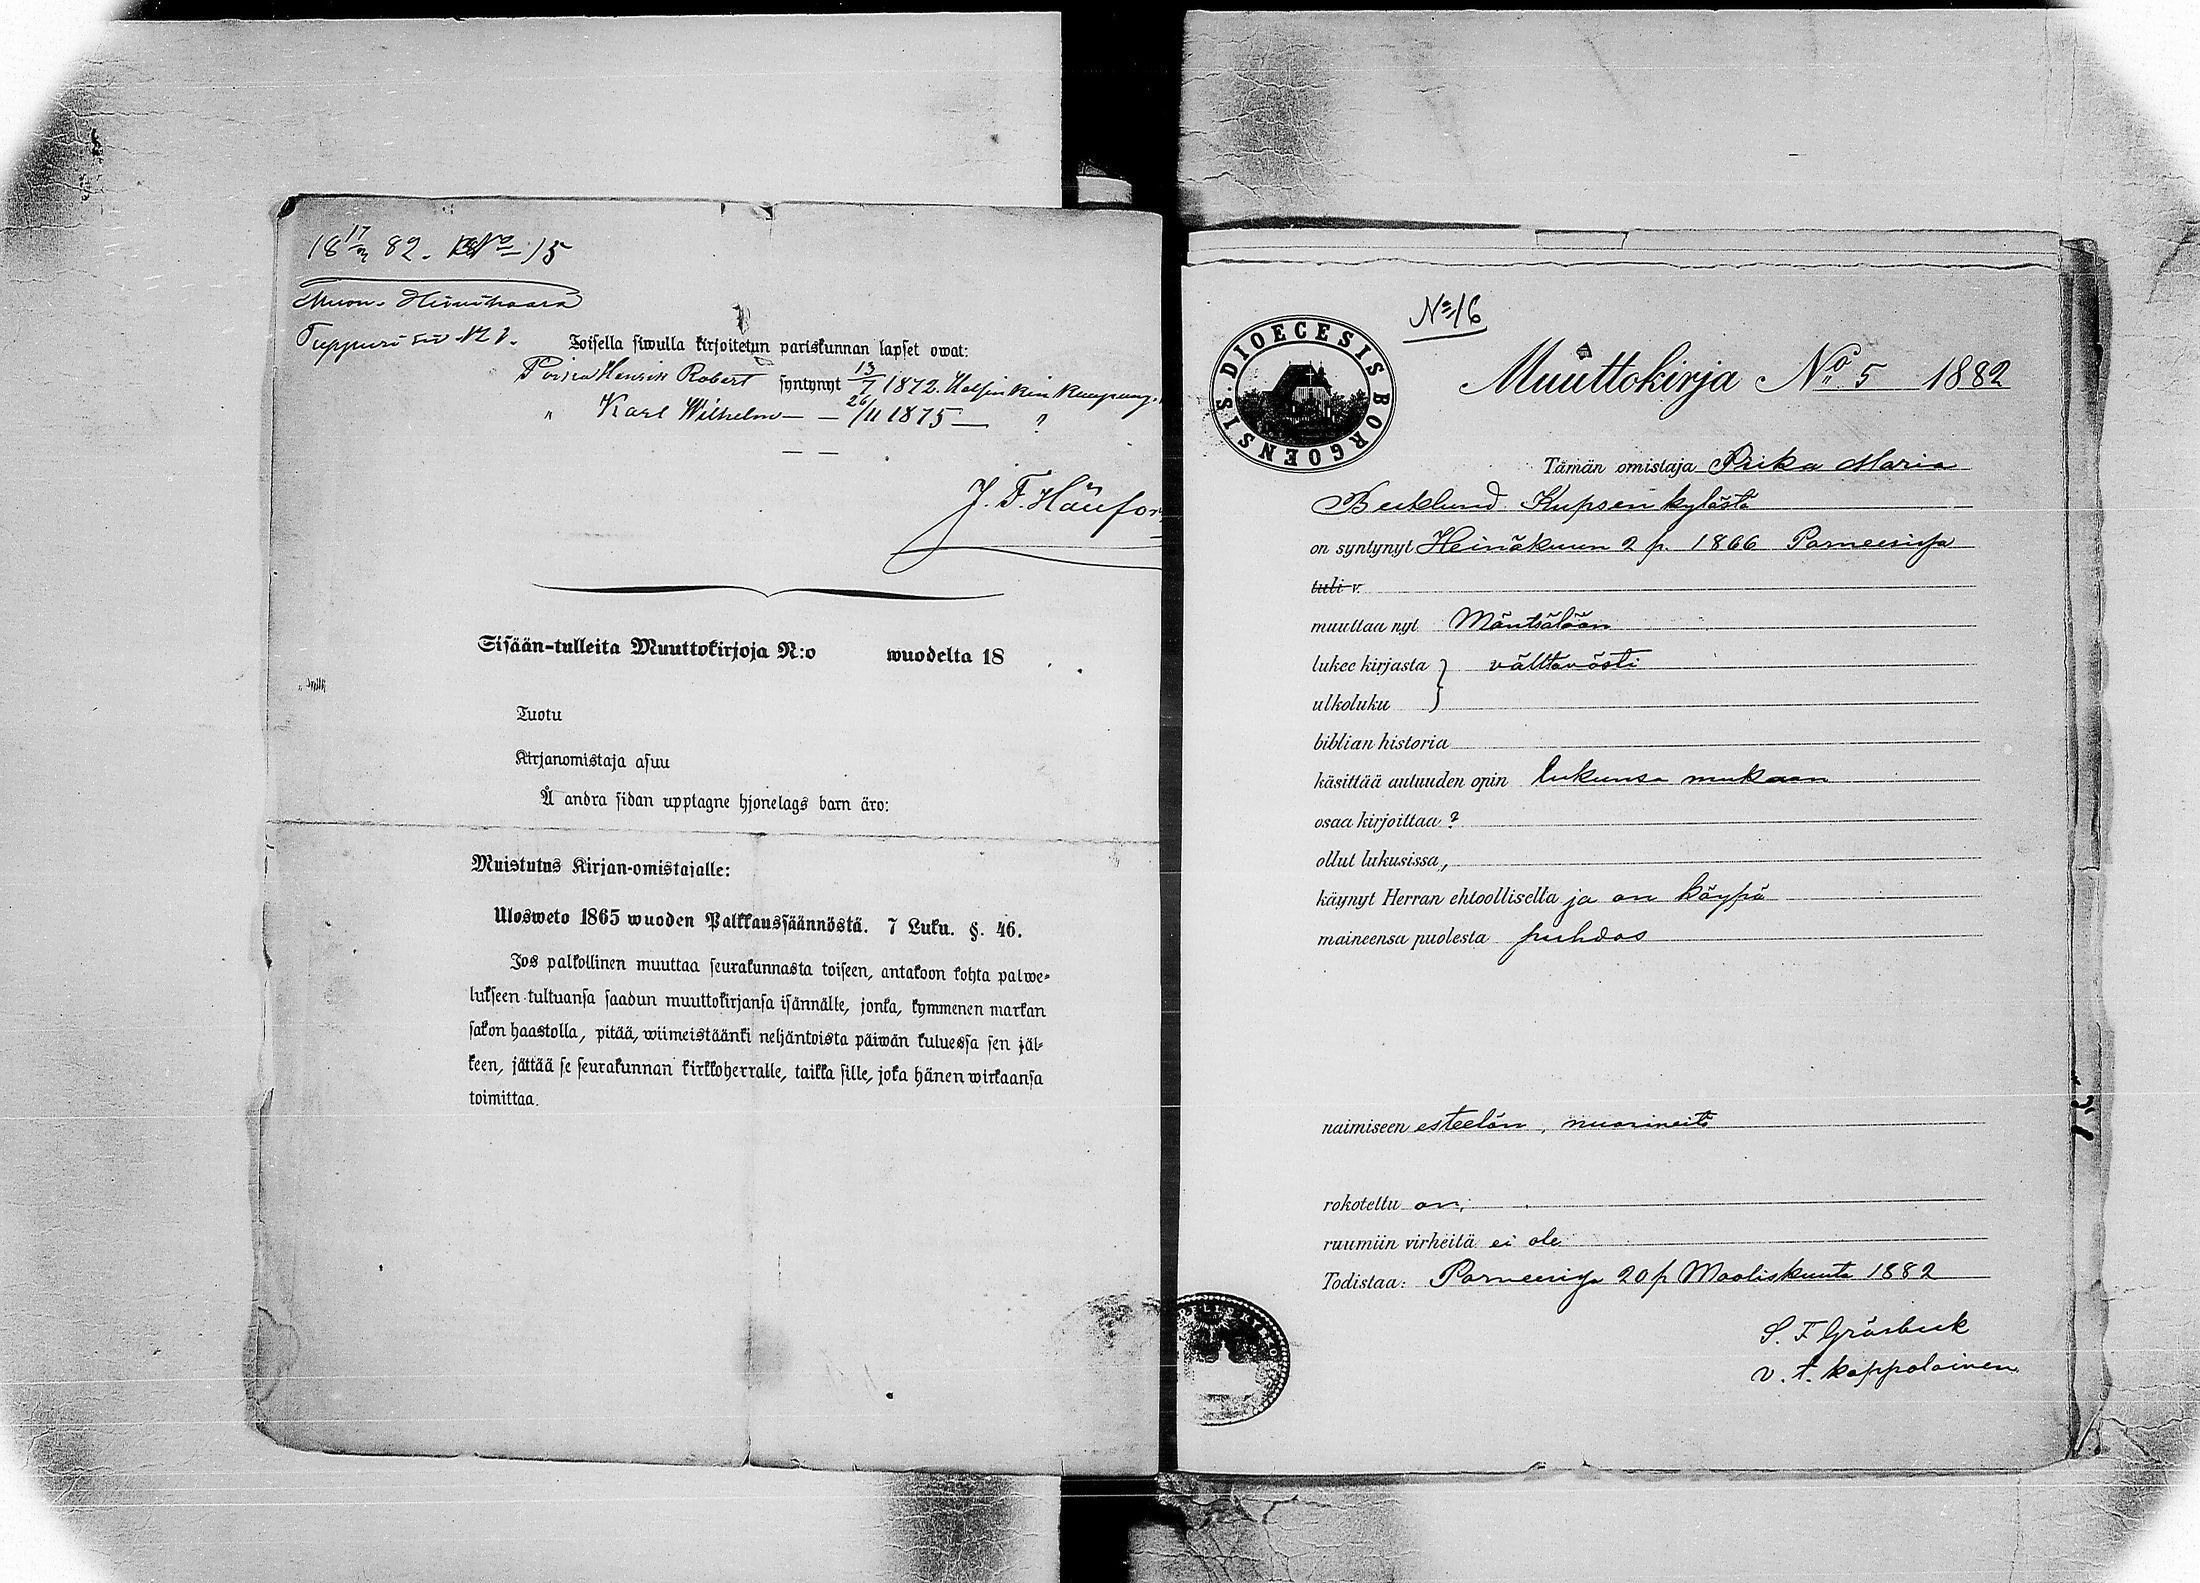 18 17/3 82. No 15
Muon. Hirvihaara
Tuppuri siv N2 1.
Toisella siwulla kirjoitetun pariskunnan lapset owat:
Poika Henrik Robert syntynyt 13/7 1872. Helsinkin kaupung.
" Karl Wilhelm — — 26/11 1875 — "
— —
J. F. Hänfor
Sisään-tulleita Muuttokirjoja N:o wuodelta 18
Tuotu
Kirjanomistaja asuu
Å andra sidan upptagne hjonelags barn äro:
Muistutus Kirjan-omistajalle:
Ulosweto 1865 wuoden Palkkaussäännöstä. 7 Luku. §. 46.
Jos palkollinen muuttaa seurakunnasta toiseen, antakoon kohta palwe-
lukseen tultuansa saadun muuttokirjansa isännälle, jonka, kymmenen markan
sakon haastolla, pitää, wiimeistäänki neljäntoista päiwän kuluessa sen jäl-
keen, jättää se seurakunnan kirkkoherralle, taikka sille, joka hänen wirkaansa
toimittaa.
No 16
DIOECESIS BORGOENSIS
Muuttokirja No 5 1882
Tämän omistaja Maria
Beeklund Kupsenkylästä
on syntynyt Heinäkuun 2 p. 1866 Porneesissa
tuli v.
muuttaa nyt Mäntsälään
lukee kirjasta } välttävästi
ulkoluku }
biblian historia
käsittää autuuden opin lukunsa mukaan
osaa kirjoittaa?
ollut lukusissa,
käynyt Herran ehtoollisella ja on käypä
maineensa puolesta puhdas
naimiseen esteetön, nuorineito
rokotettu on,
ruumiin virheitä ei ole
Todistaa: Porneesissa 20 p Maaliskuuta 1882
S. F Gräsbeck
v. t. kappalainen